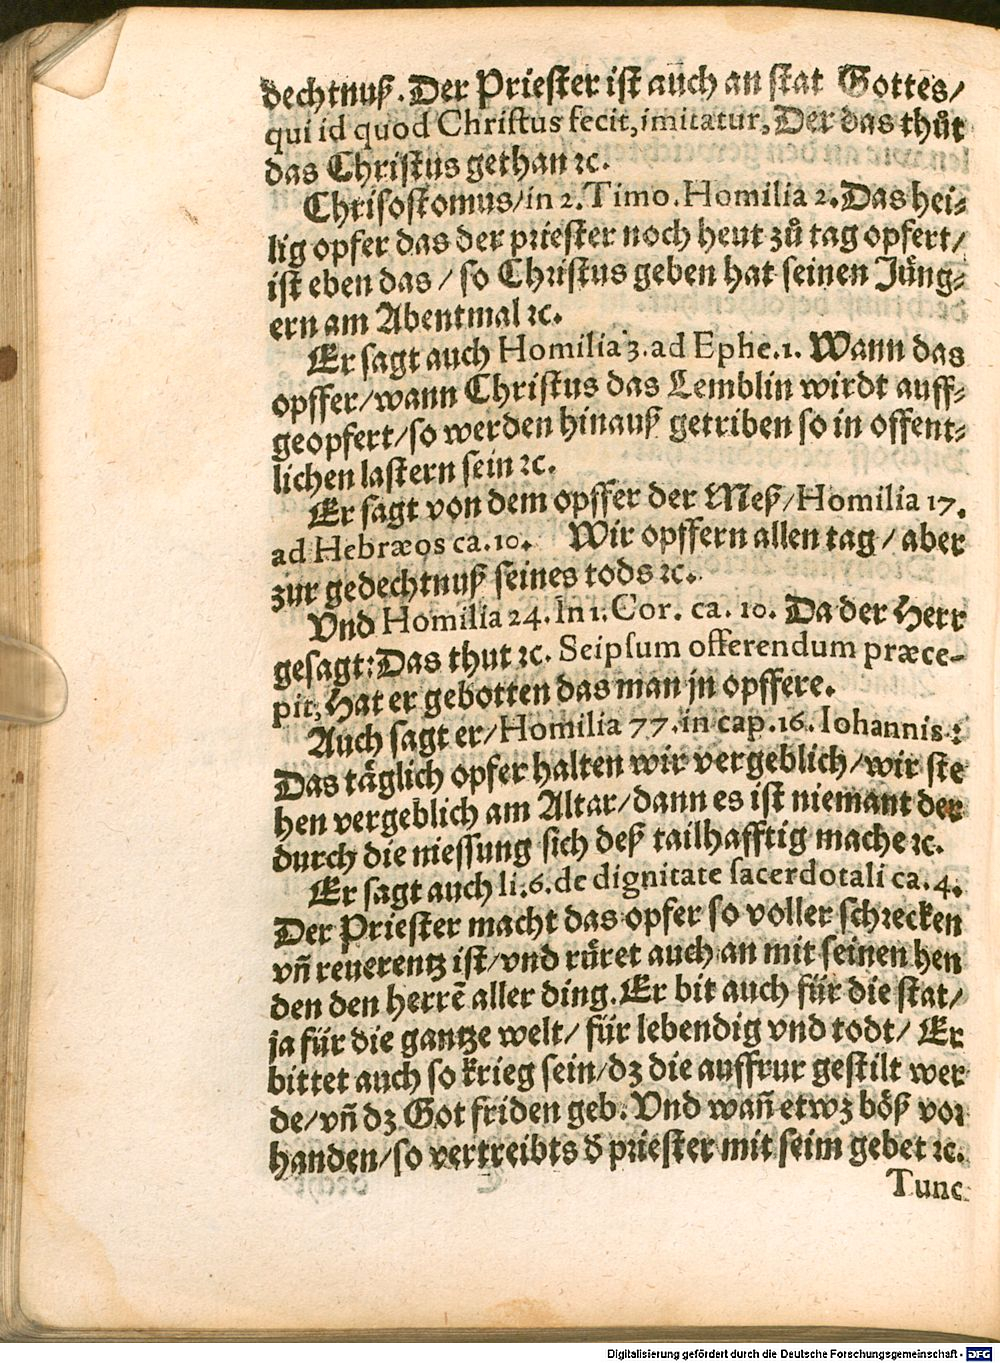 dechtnuß. Der Priester ist auch an stat Gottes/
qui id quod Christus fecit, imitatur, Der das thůt
das Christus gethan ꝛc.
Chrisostomus/in 2. Timo. Homilia 2. Das hei⸗
lig opfer das der priester noch heut zů tag opfert/
ist eben das / so Christus geben hat seinen Jüng⸗
ern am Abentmal ꝛc.
Er sagt auch Homilia 3. ad Ephe. 1. Wann das
opffer/wann Christus das Lemblin wirdt auff⸗
geopfert/so werden hinauß getriben so in offent⸗
lichen lastern sein ꝛc.
Er sagt von dem opffer der Meß/Homilia 17.
ad Hebræos ca. 10. Wir opffern allen tag / aber
zur gedechtnuß seines tods ꝛc.
Vnd Homilia 24. In 1. Cor. ca. 10. Da der Herr
gesagt: Das thut ꝛc. Seipsum offerendum præce-
pit, Hat er gebotten das man jn opffere.
Auch sagt er/Homilia 77. in cap. 16. Iohannis:
Das täglich opfer halten wir vergeblich/wir ste
hen vergeblich am Altar/dann es ist niemant der
durch die niessung sich deß tailhafftig mache ꝛc.
Er sagt auch li. 6. de dignitate sacerdotali ca. 4.
Der Priester macht das opfer so voller schrecken
vñ reuerentz ist/vnd rüret auch an mit seinen hen
den den herrē aller ding. Er bit auch für die stat/
ja für die gantze welt/ für lebendig vnd todt/ Er
bittet auch so krieg sein/dz die auffrur gestilt wer
de/vñ dz Got friden geb. Vnd wañ etwz böß vor
handen/so vertreibts d̓ priester mit seim gebet ꝛc.
Tunc
Digitalisierung gefördert durch die Deutsche Forschungsgemeinschaft - DFG